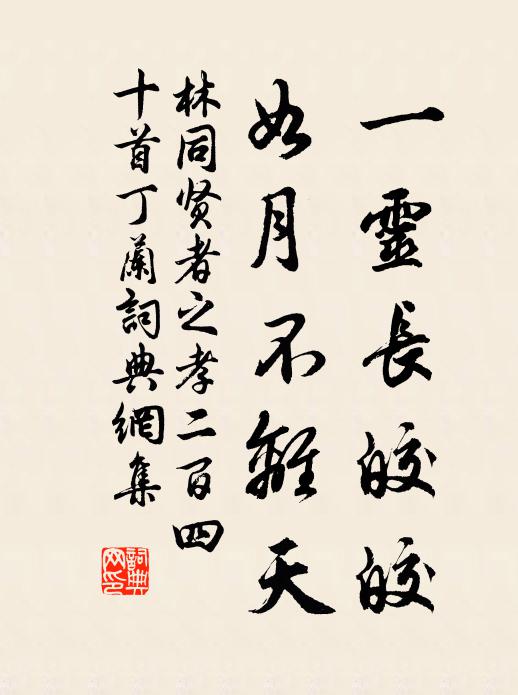 一靈長皎皎
如月不離天
林同贤者之孝二百四
十首丁蘭詞典網集
詞典网印